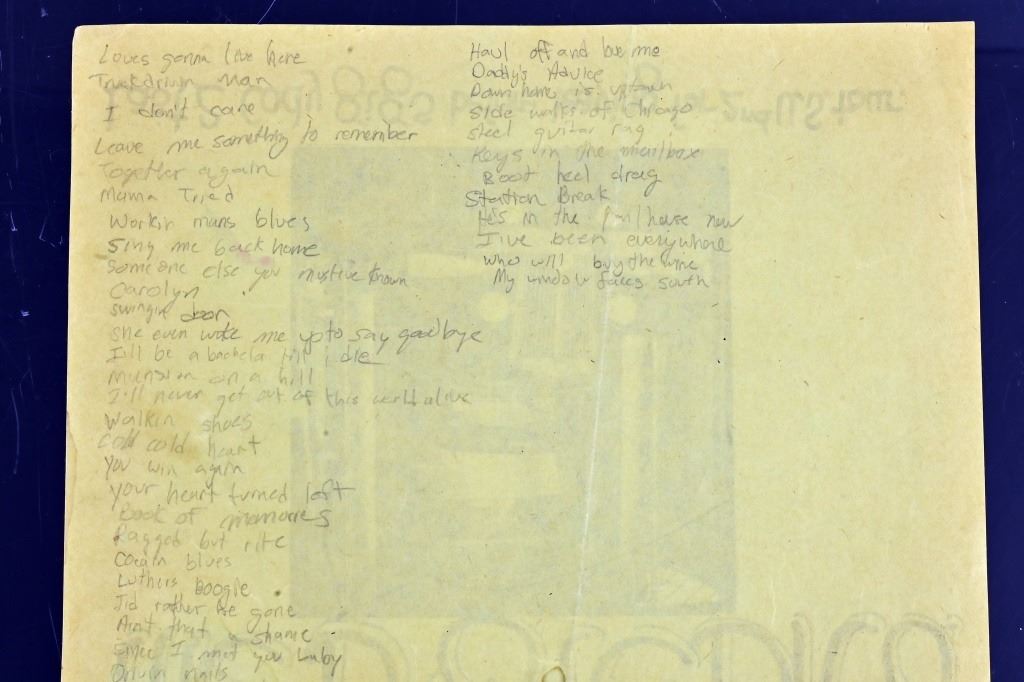 Loves gonna live here
Truckdrivin man
I don't care
Leave me something to remember
Together again
Mama Tried
Workin mans blues
Sing me back home
Someone else you mustive known
Carolyn
swingin door
she even woke me upto say goodbye
I'll be a bachela till i die
Munsion on a hill
I'll never get out of this world alive
Walkin shoes
Cold cold heart
You win again
your heart turned left
Book of memories
Ragged but rite
Cocain blues
Luthers boogie
I'd rather be gone
Aint that a shame
Since I met you baby
Drivin nails
Haul off and love me
Daddy's Advice
Down home is uptown
Side walks of Chicago
steel guitar rag
Keys in the mailbox
Boot heel drag
Station Break
He's in the now
I've been everywhere
who will buy the wine
My window faces south